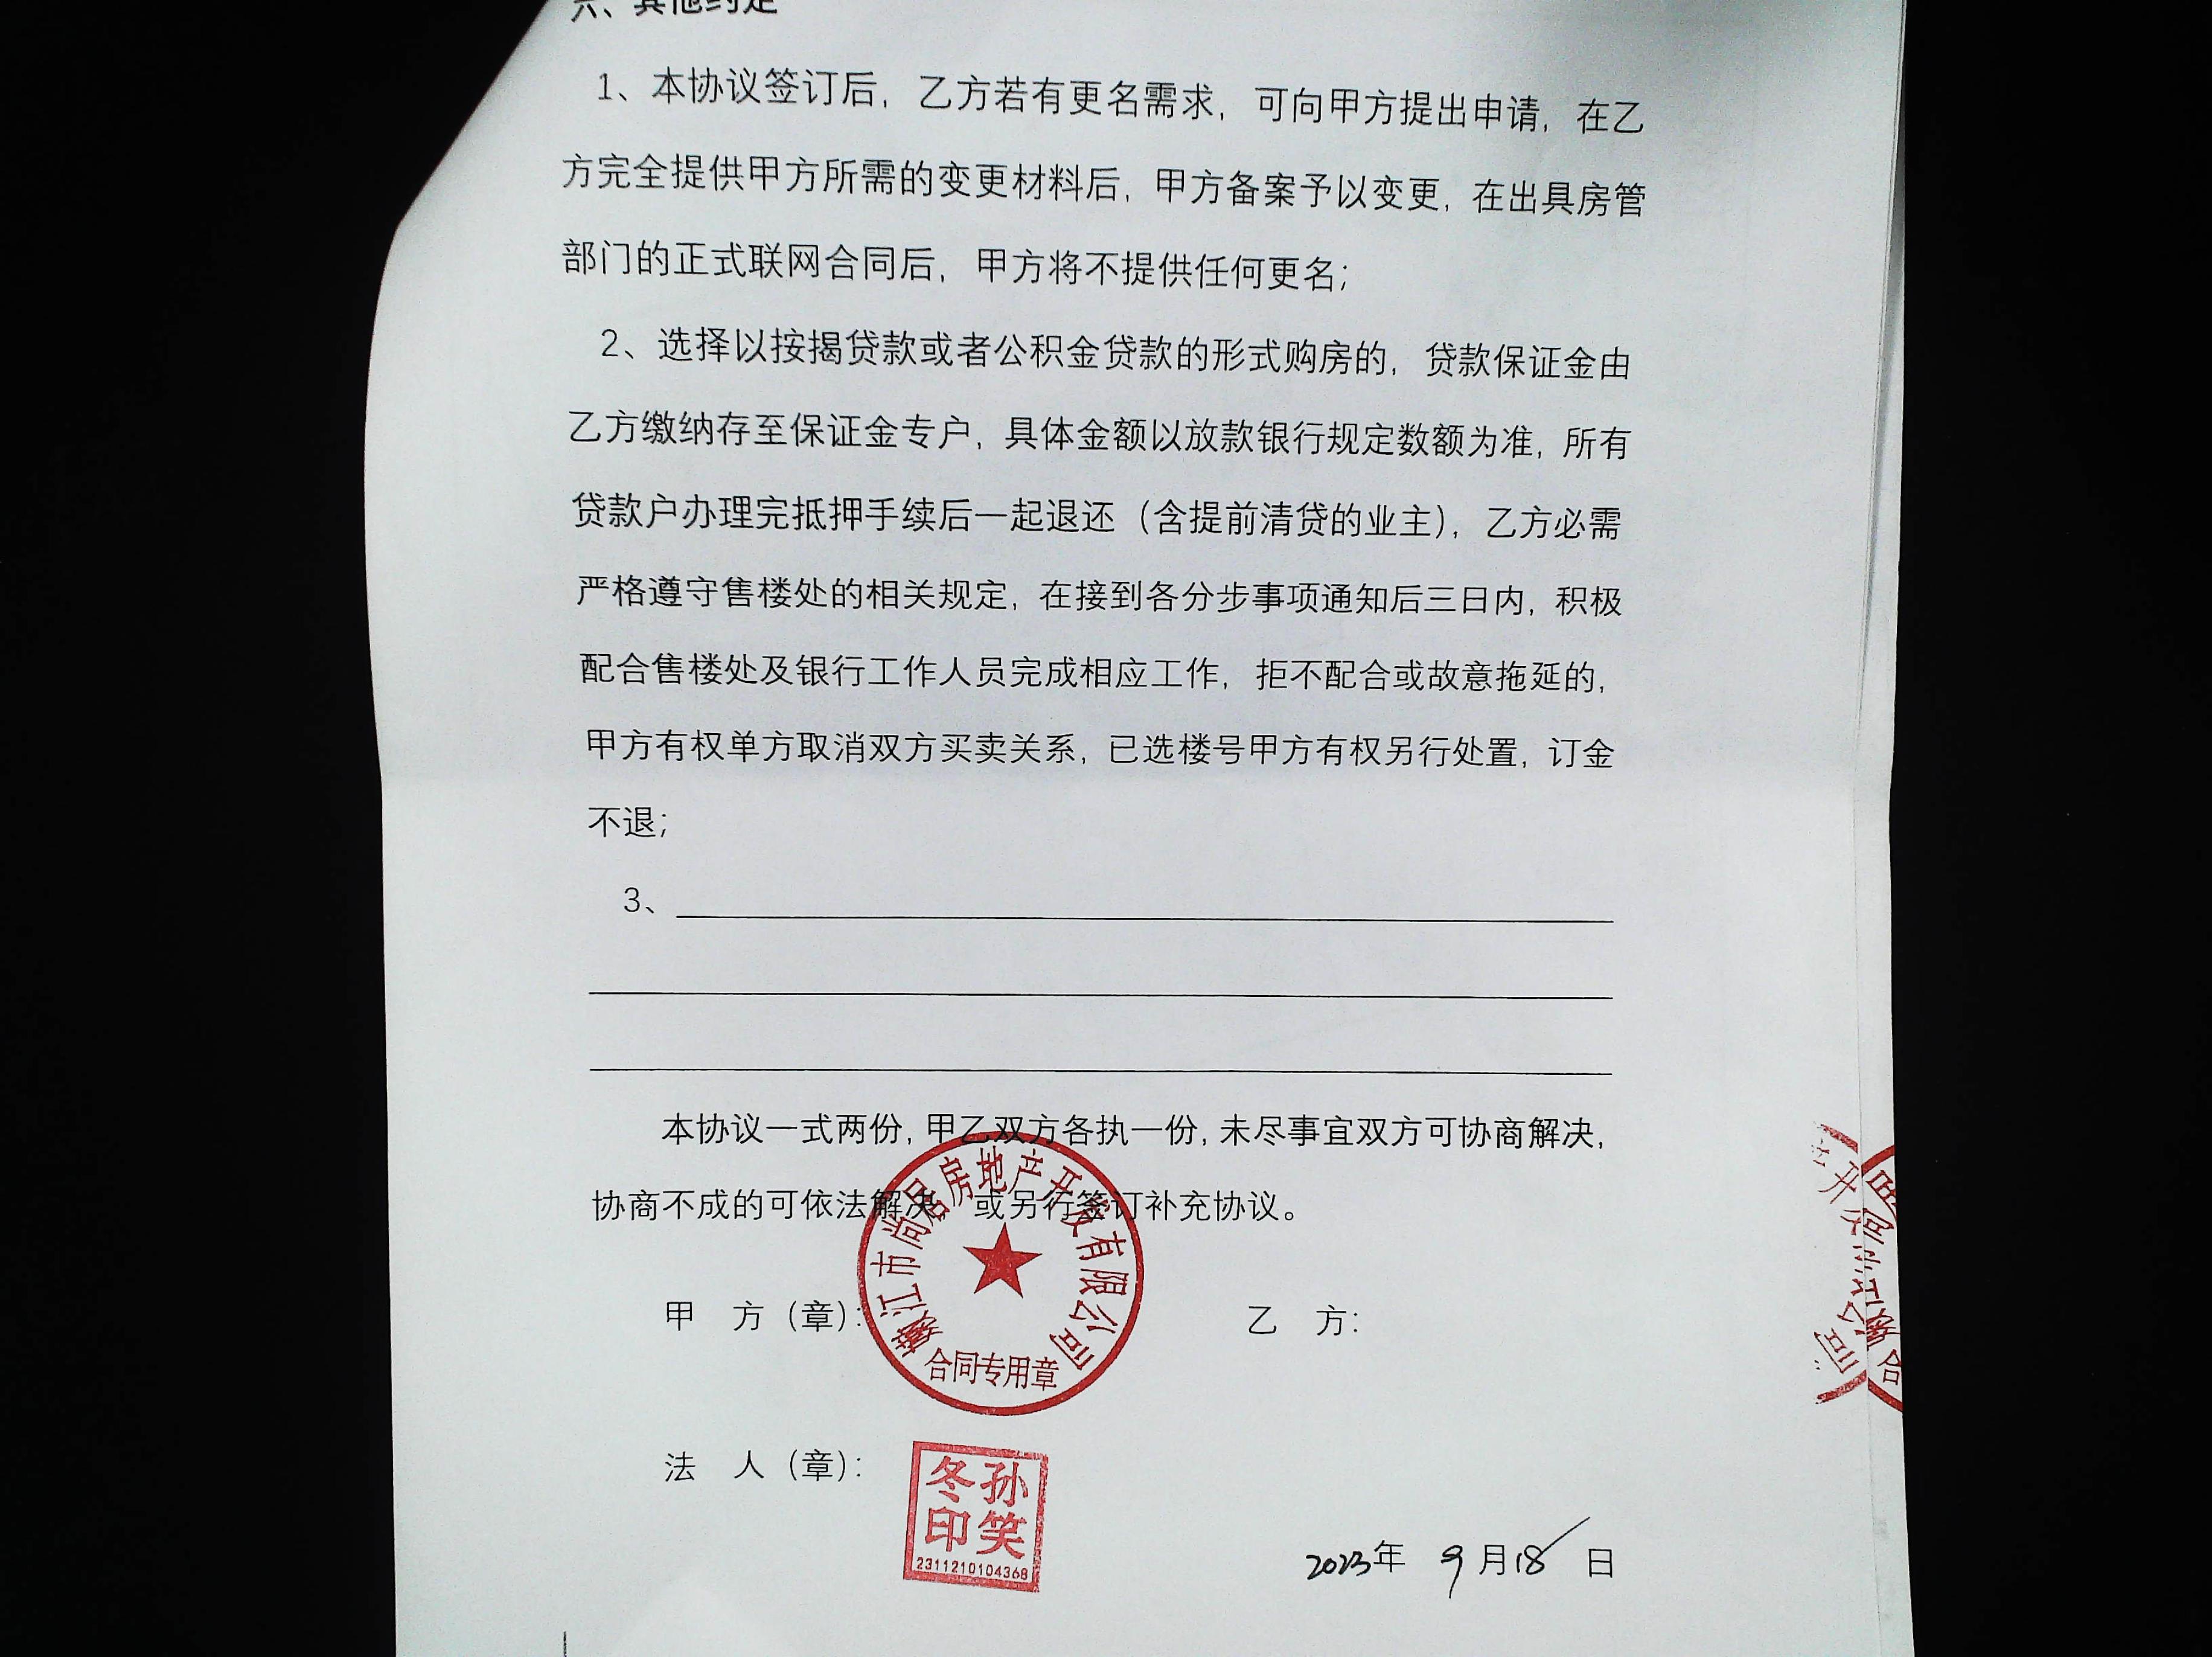 六、其他约定
1、本协议签订后，乙方若有更名需求，可向甲方提出申请，在乙
方完全提供甲方所需的变更材料后，甲方备案予以变更，在出具房管
部门的正式联网合同后，甲方将不提供任何更名；
2、选择以按揭贷款或者公积金贷款的形式购房的，贷款保证金由
乙方缴纳存至保证金专户，具体金额以放款银行规定数额为准，所有
贷款户办理完抵押手续后一起退还（含提前清贷的业主），乙方必需
严格遵守售楼处的相关规定，在接到各分步事项通知后三日内，积极
配合售楼处及银行工作人员完成相应工作，拒不配合或故意拖延的，
甲方有权单方取消双方买卖关系，已选楼号甲方有权另行处置，订金
不退；
3、
本协议一式两份，甲乙双方各执一份，未尽事宜双方可协商解决，
协商不成的可依法解决 或另行签订补充协议。
嫩江市尚居房地产开发有限公司
合同专用章
甲 方（章）：
乙 方：
法 人（章）：
孙笑冬印
2311210104368
2023年 9月18日